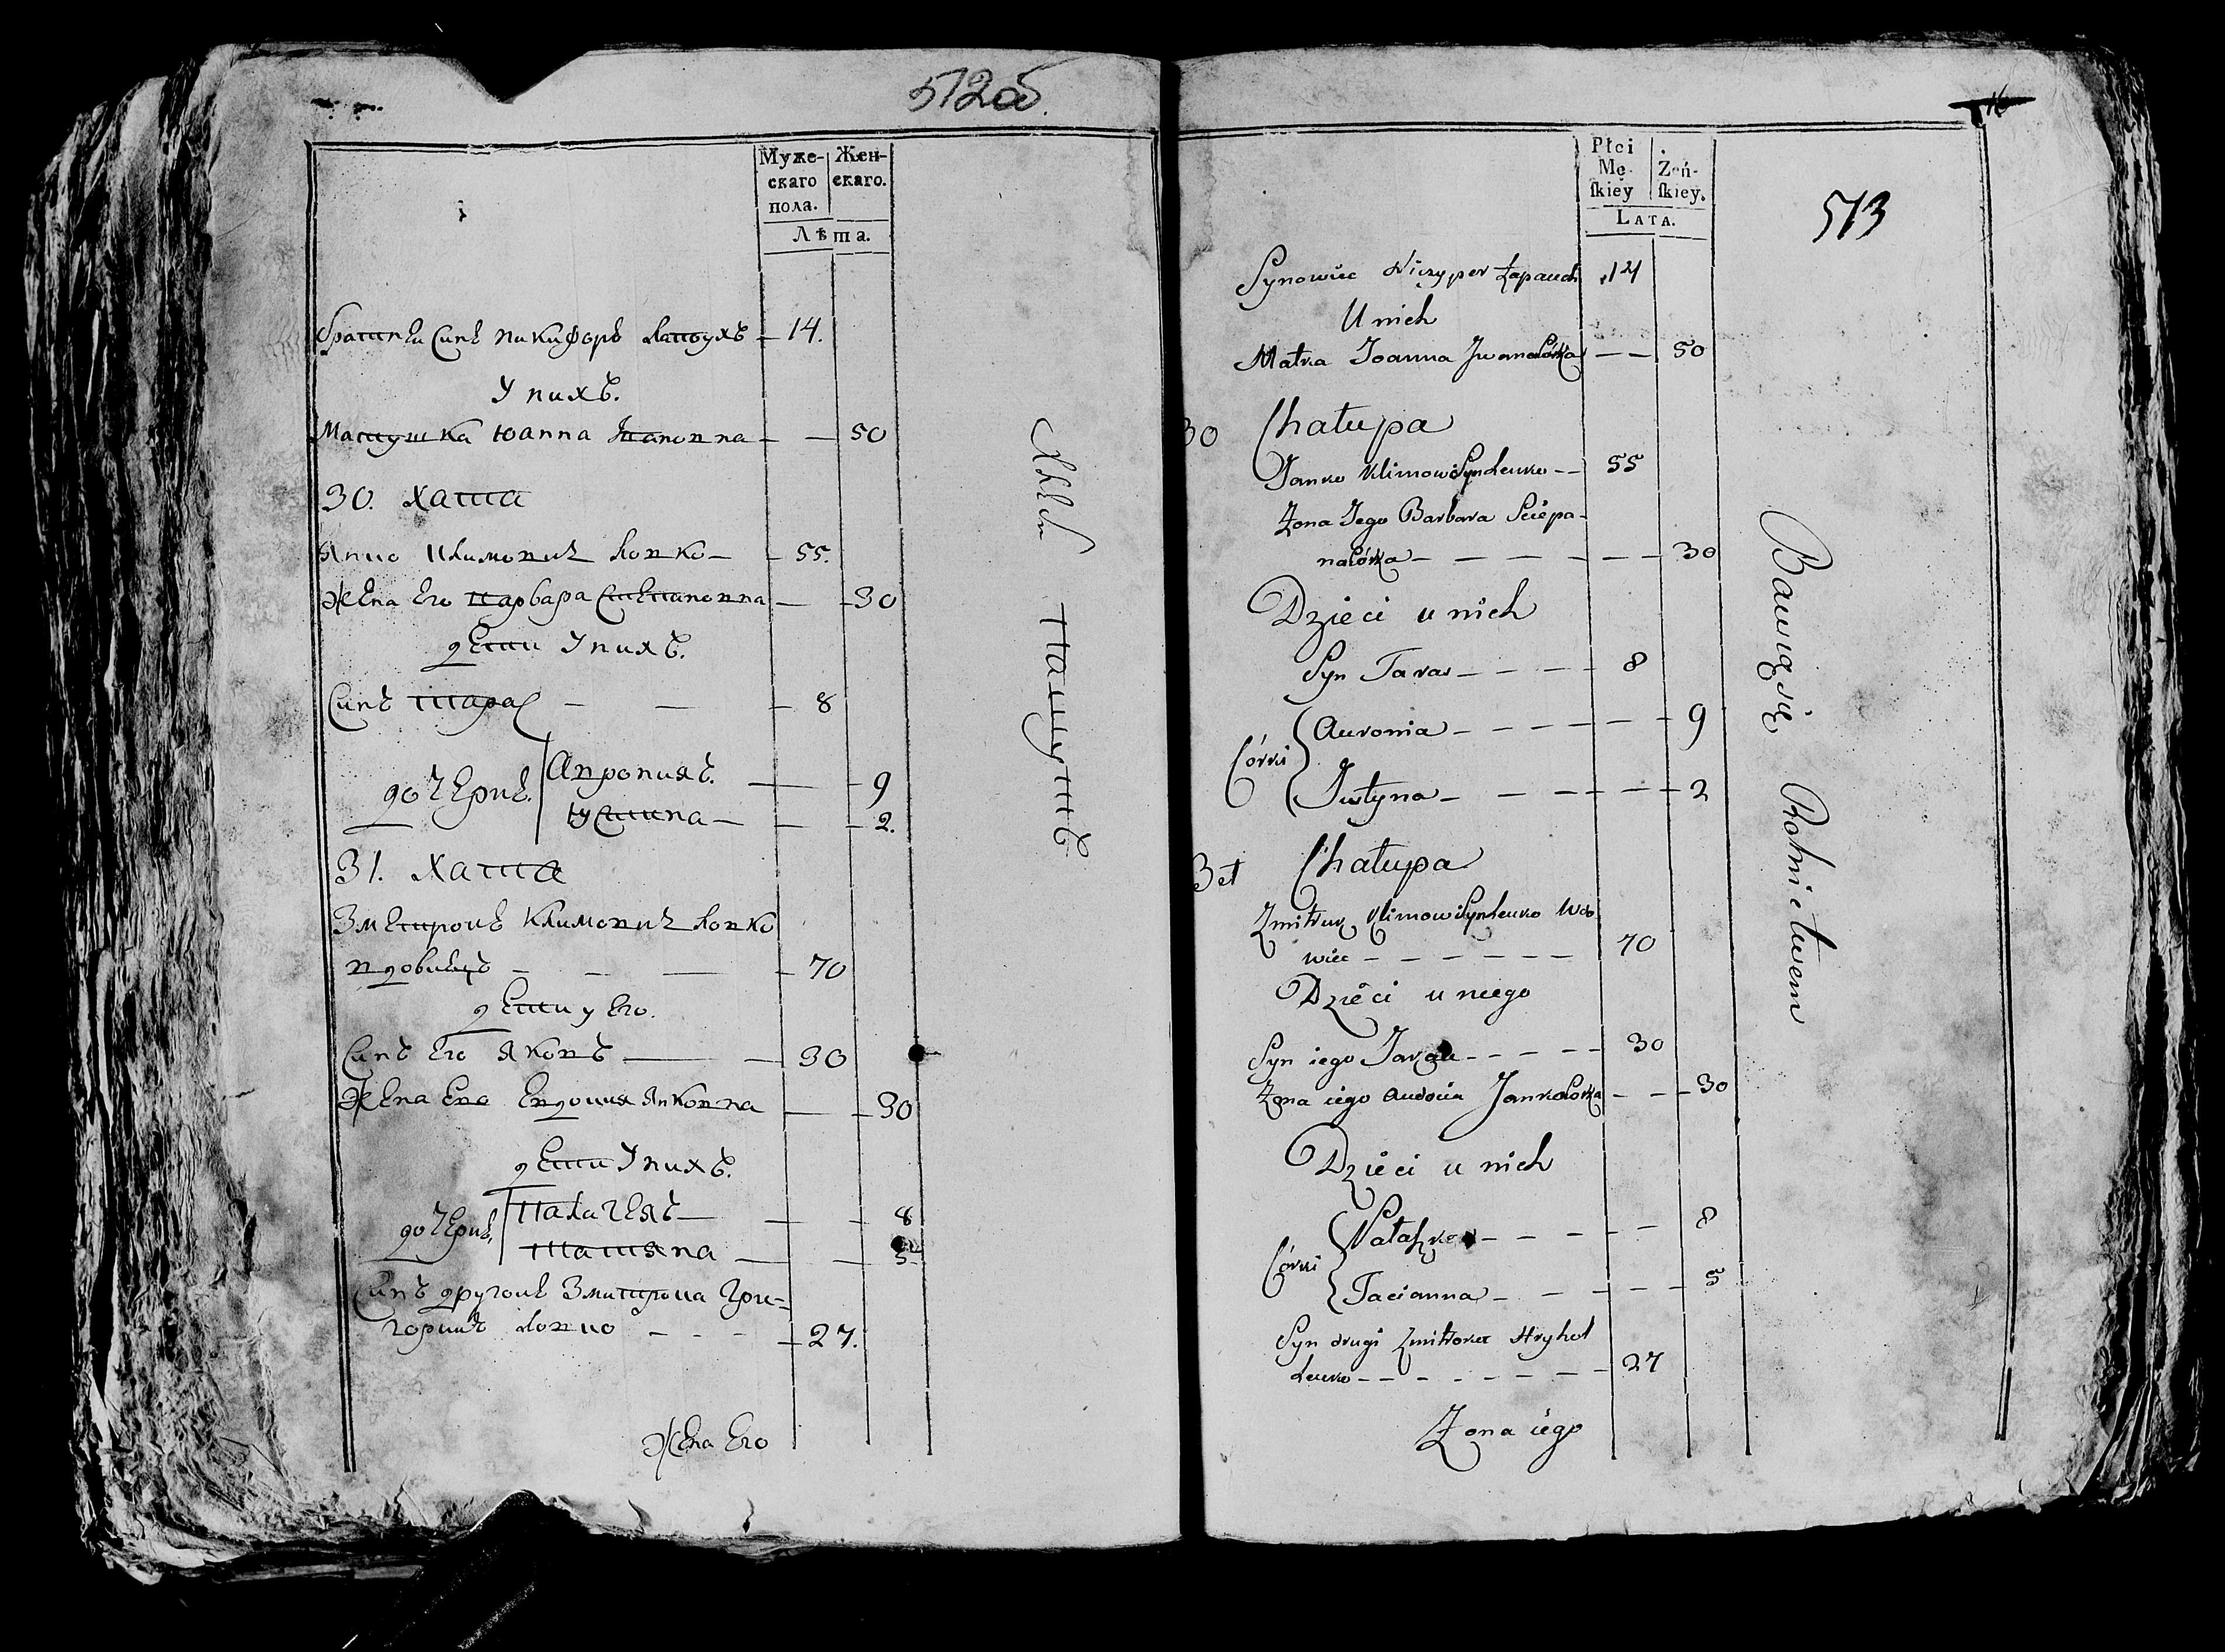 512об.
Муже- Жен-
скаго скаго.
пола.
Лѣта.
братнеи Синъ Никифоръ Лапоухъ — 14.
У нихъ.
Матушка Юанна Иванонна — — 50
30. Хата
Янко Климовичъ Левко — 55.
Жена Его Варвара Степановна — 30
дети У нихъ.
Синъ Тарас — — — 8
дочерие. Авронияъ. — — 9
Юстина — — — 2.
31. Хата
Змитрокъ Климовичъ Левко
вдовиецъ — — — 70
дети у Его.
Синъ Его Яковъ — — 30
Жена Его Евдокия Янковна — — 30
дети У нихъ.
дочерие, Палагеяъ — — 8
Татяна — — 5
Синъ другоие Змитрока Гри-
гориий Левко — — — 27.
Жена Его
Хлеб Пашутъ
16
513
Płci
Mę- Żeń-
ſkiey ſkiey.
LATA.
Synowiec Niczyper Łapauch 14
U nich
Matka Joanna Jwanaćórka — — 50
30 Chałupa
Janko Klimow Syn Leuko — — 55
Zona Jego Barbara Sciepa-
naćórka — — — — — — 30
Dzieci u nich
Syn Taras — — — — 8
Córki Auronia — — — — — — 9
Justyna — — — — — — 2
31 Chałupa
Zmitruk Klimow Syn Leuko Wdo
wiec — — — — — — 70
Dzieci u niego
Syn iego Jakau — — — — — 30
Zona iego Audocia Jankaćórka — — — 30
Dzieci u nich
Córki Natalka — — — — — 8
Tacianna — — — — — 5
Syn drugi Zmitroka Hryhol
Leuko — — — — — — — — 27
Zona iégo
Bawią się Rolnictwem